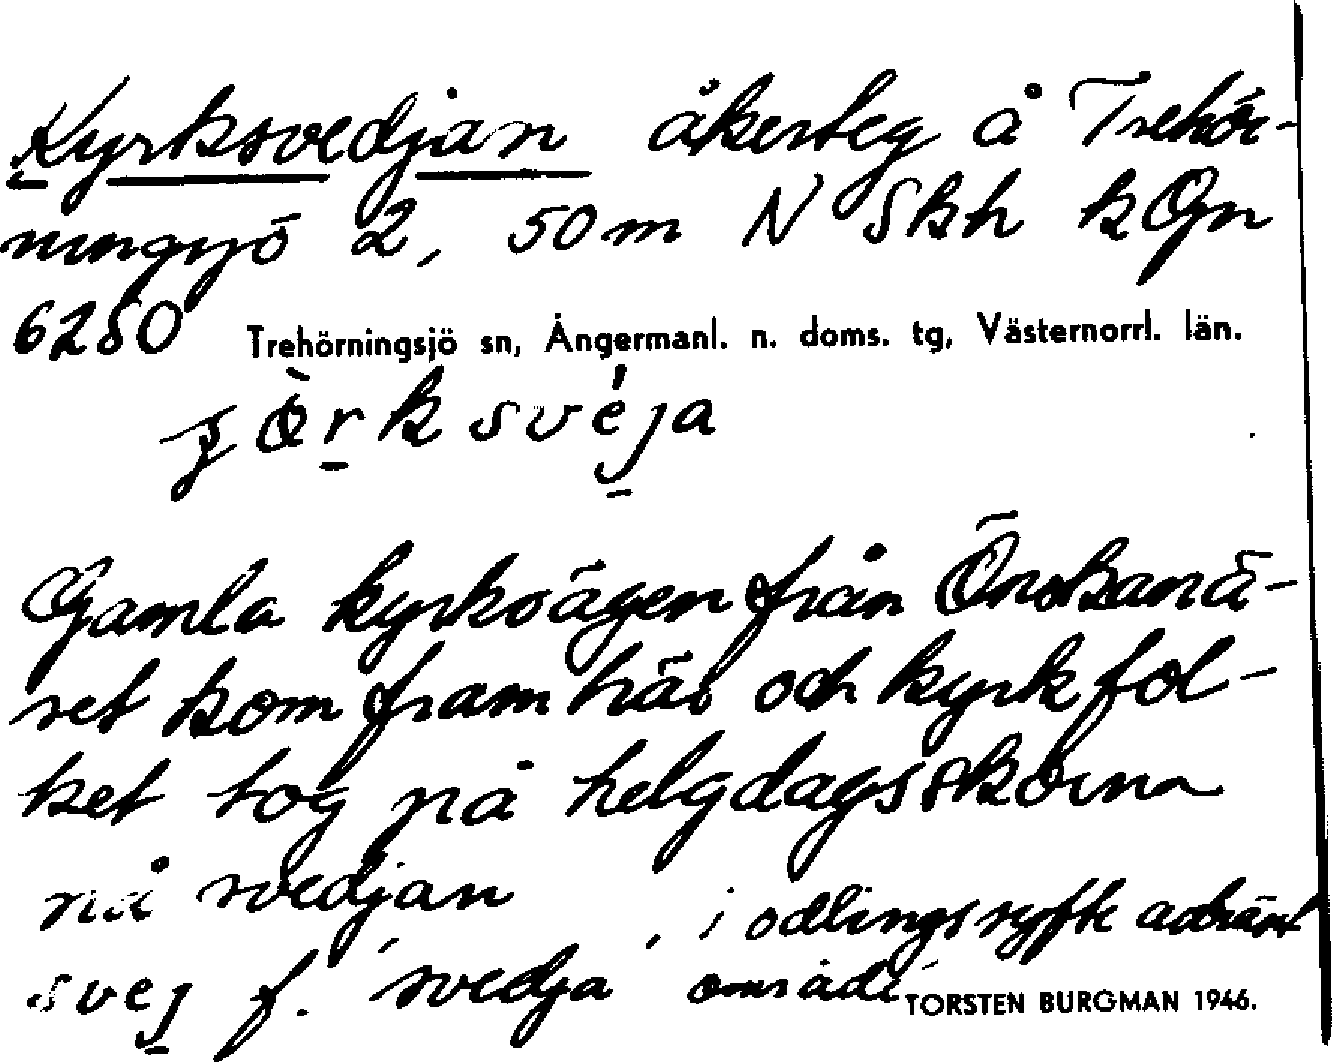 Kyrksvedjan åkerteg å Trehör-
ningsjö 2, 50 m N Skh k Ögn
6280 Trehörningsjö sn, Ångermanl. n. doms. tg, Västernorrl. län.
Gamla kyrkvägen från Önskanä-
set kom fram här och kyrkfol-
ket tog på helgdagsskorna
på svedjan
svej f. 'svedja, i odlingssyfte avbränt
område'
TORSTEN BURGMAN 1946.